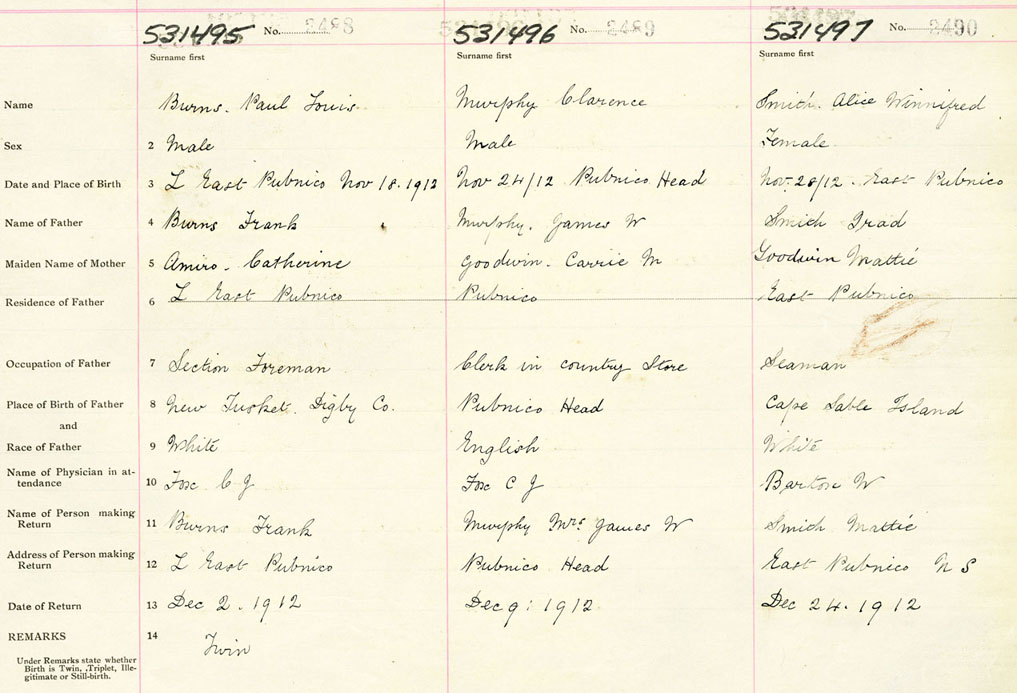 531495 No. 2488 531496 No. 2489 531497 No. 2490
Surname first Surname first Surname first
Name Burns. Paul Louis. Murphy Clarence Smith. Alice Winnifred
Sex 2 Male Male Female
Date and Place of Birth 3 L East Pubnico Nov 18. 1912 Nov 24/12 Pubnico Head Nov. 28/12. East Pubnico
Name of Father 4 Burns Frank Murphy. James W Smith
Maiden Name of Mother 5 Amiro. Catherine Goodwin. Carrie M Goodwin Mattie
Residence of Father 6 L East Pubnico Pubnico East Pubnico
Occupation of Father 7 Section Foreman Clerk in country Store Seaman
Place of Birth of Father 8 New Tusket. Digby Co. Pubnico Head Cape Sable Island
and
Race of Father 9 White English White
Name of Physician in at-
tendance 10 Fox C J Fox C J Barton W
Name of Person making
Return 11 Burns Frank Murphy Mrs James W Smith Mattie
Address of Person making
Return 12 L East Pubnico Pubnico Head East Pubnico N S
Date of Return 13 Dec 2. 1912 Dec 9: 1912 Dec 24. 1912
REMARKS 14 Twin
Under Remarks state whether
Birth is Twin, Triplet, Ille-
gitimate or Still-birth.